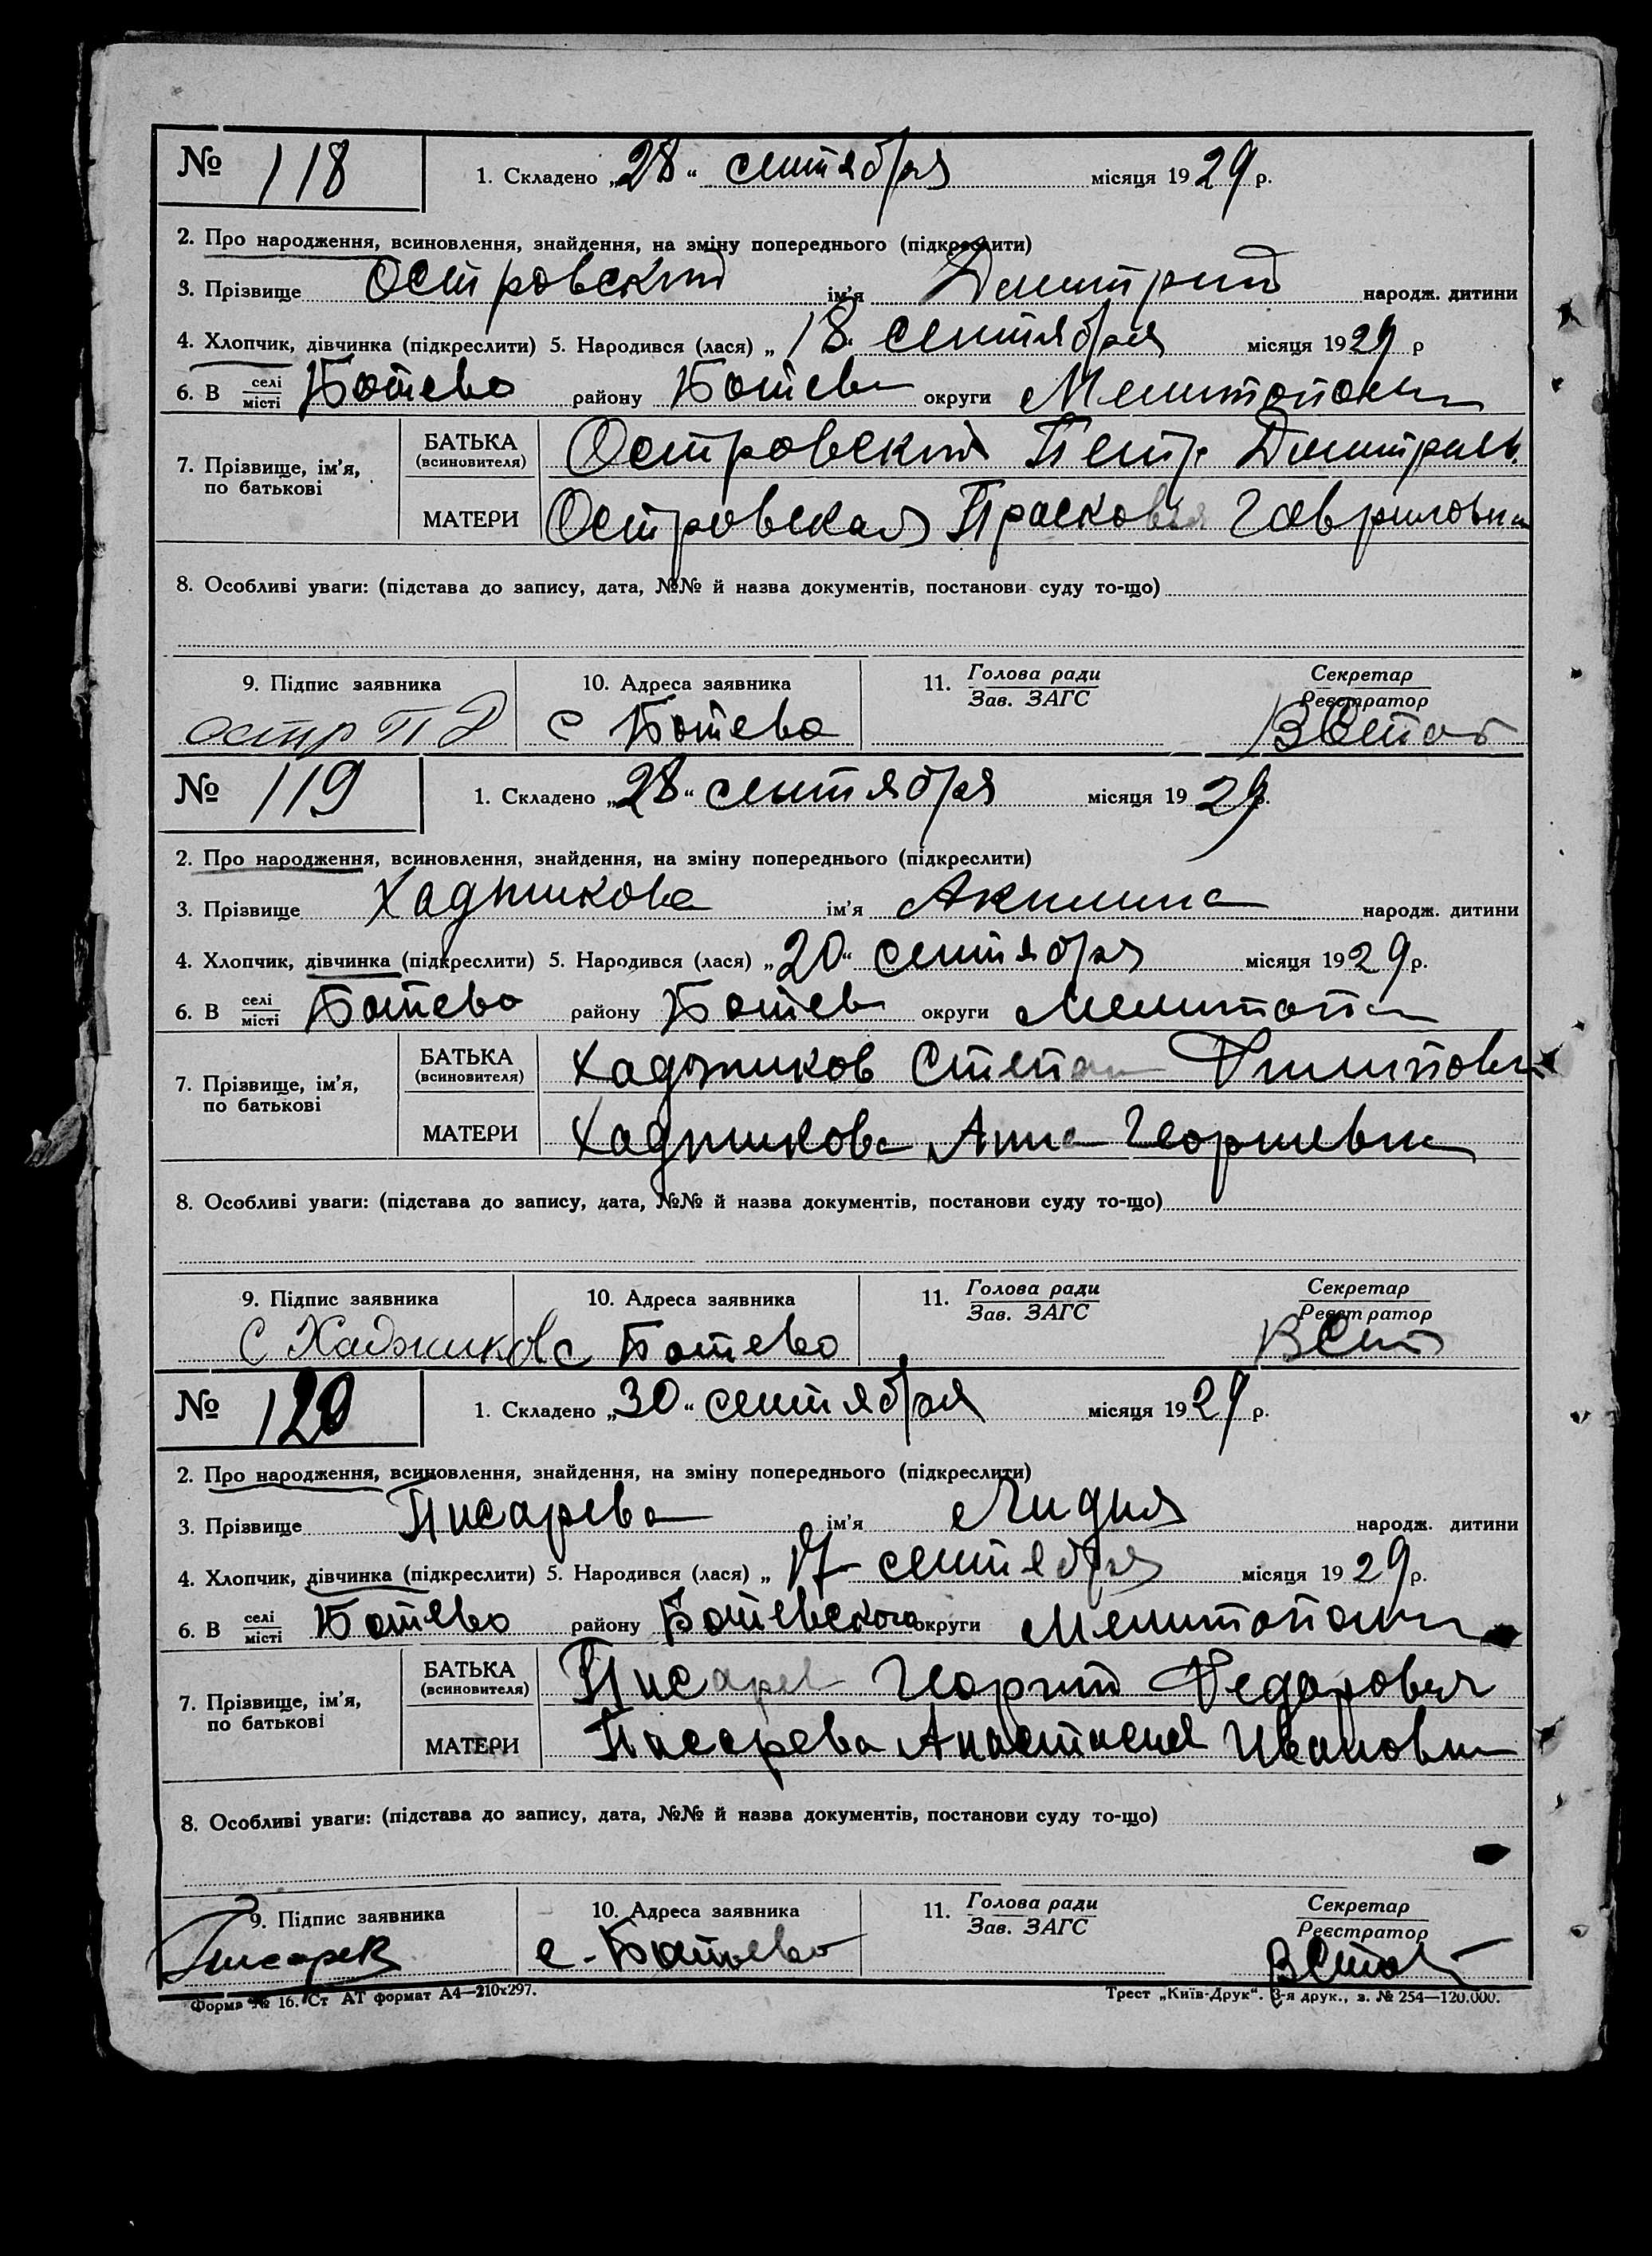 № 118 1. Складено „28“ сентября місяця 1929 р.
2. Про народження, всиновлення, знайдення, на зміну попереднього (підкреслити)
3. Прізвище Островский ім’я Димитрий народж. дитини
4. Хлопчик, дівчинка (підкреслити) 5. Народився (лася) „18“ сентября місяця 1929 р
6. В селі/місті Ботево району Ботев округи
7. Прізвище, ім’я, по батькові
БАТЬКА (всиновителя) Островский Петр
МАТЕРИ Островская Прасковья Гавриловна
8. Особливі уваги: (підстава до запису, дата, №№ й назва документів, постанови суду то-що)
9. Підпис заявника 10. Адреса заявника 11. Голова ради/Зав. ЗАГС Секретар/Реєстратор
Остр П Д с Ботево
№ 119 1. Складено „28“ сентября місяця 1929 р.
2. Про народження, всиновлення, знайдення, на зміну попереднього (підкреслити)
3. Прізвище Хаджикова ім’я Акилина народж. дитини
4. Хлопчик, дівчинка (підкреслити) 5. Народився (лася) „20“ сентября місяця 1929 р.
6. В селі/місті Ботево району Ботев округи
7. Прізвище, ім’я, по батькові
БАТЬКА (всиновителя) Хаджиков Степан Филипович
МАТЕРИ Хаджикова Анна Георгиевна
8. Особливі уваги: (підстава до запису, дата, №№ й назва документів, постанови суду то-що)
9. Підпис заявника 10. Адреса заявника 11. Голова ради/Зав. ЗАГС Секретар/Реєстратор
С Хаджиков с Ботево
№ 120 1. Складено „30“ сентября місяця 1929 р.
2. Про народження, всиновлення, знайдення, на зміну попереднього (підкреслити)
3. Прізвище Писарева ім’я Лидия народж. дитини
4. Хлопчик, дівчинка (підкреслити) 5. Народився (лася) „17 сентября місяця 1929 р.
6. В селі/місті Ботево району Ботевского округи
7. Прізвище, ім’я, по батькові
БАТЬКА (всиновителя) Писарев Георгий Федорович
МАТЕРИ Писарева Анастасия Ивановна
8. Особливі уваги: (підстава до запису, дата, №№ й назва документів, постанови суду то-що)
9. Підпис заявника 10. Адреса заявника 11. Голова ради/Зав. ЗАГС Секретар/Реєстратор
Писарев с. Ботьево
Форма № 16. Ст АТ формат А4—210х297. Трест „Київ-Друк“. 3-я друк., з. № 254—120.000.